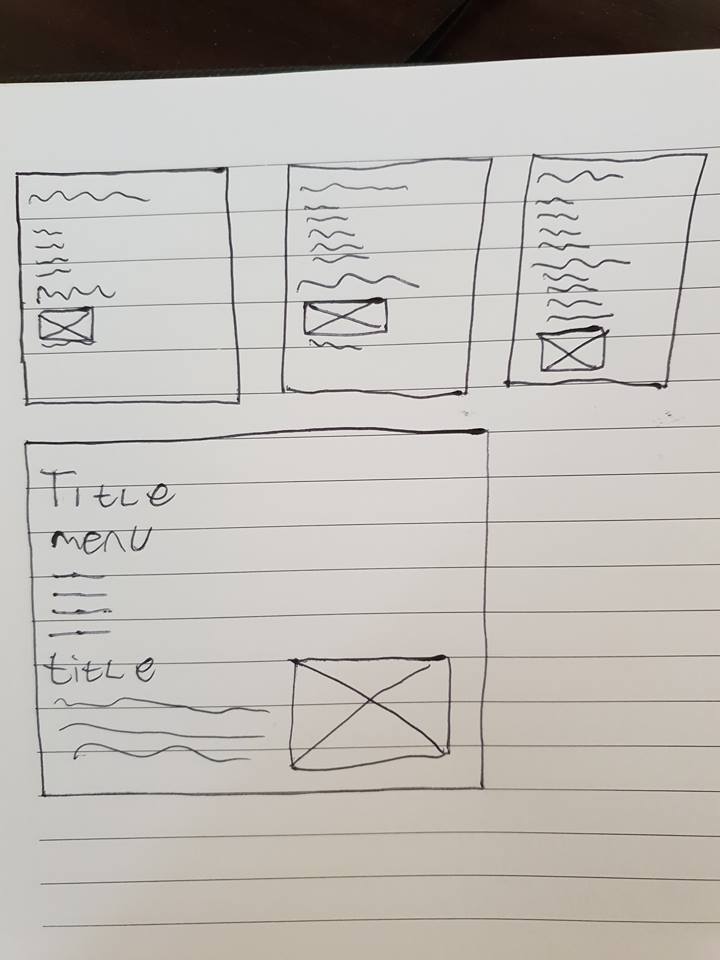 Title
menu
title